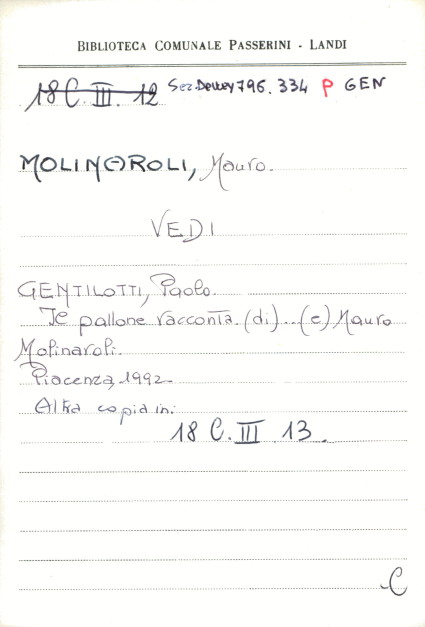 BIBLIOTECA COMUNALE PASSERINI - LANDI
18 C. III. 12 Sez. Dewey 796. 334 P GEN
MOLINAROLI, Mauro.
VEDI
GENTILOTTI, Paolo.
Il pallone racconta (di)...(e) Mauro
Molinaroli.
Piacenza, 1992.
Altra copia in:
18 C. III 13.
C